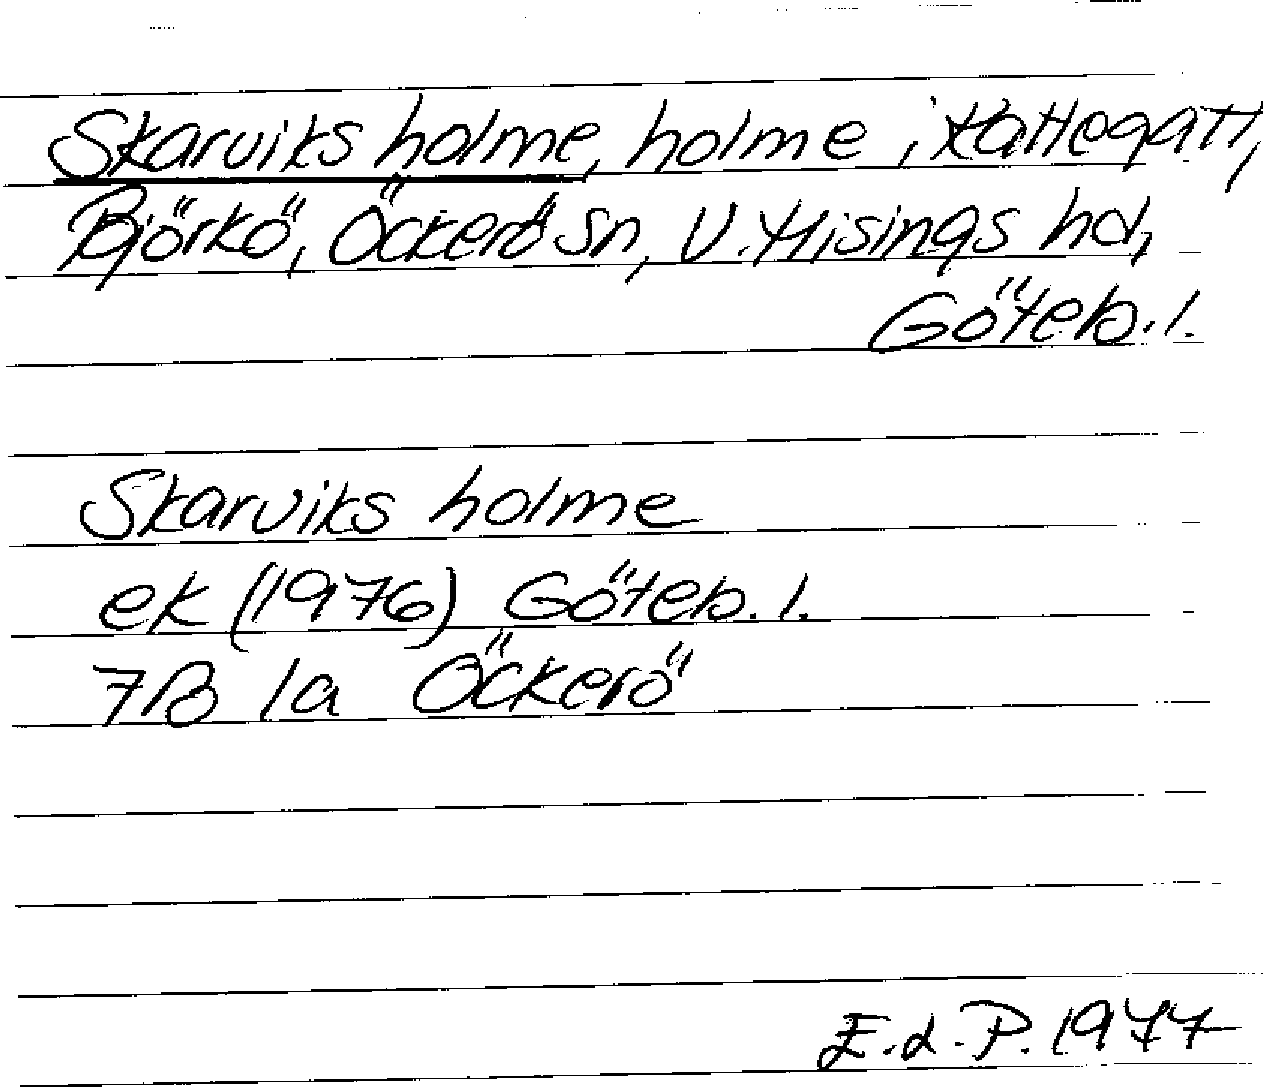 Skarviks holme, holme i Kattegatt,
Björkö, Öckerö sn, V. Hisings hd,
Göteb. l.
Skarviks holme
ek (1976) Göteb. l.
7B 1a Öckerö
E.d.P. 1977